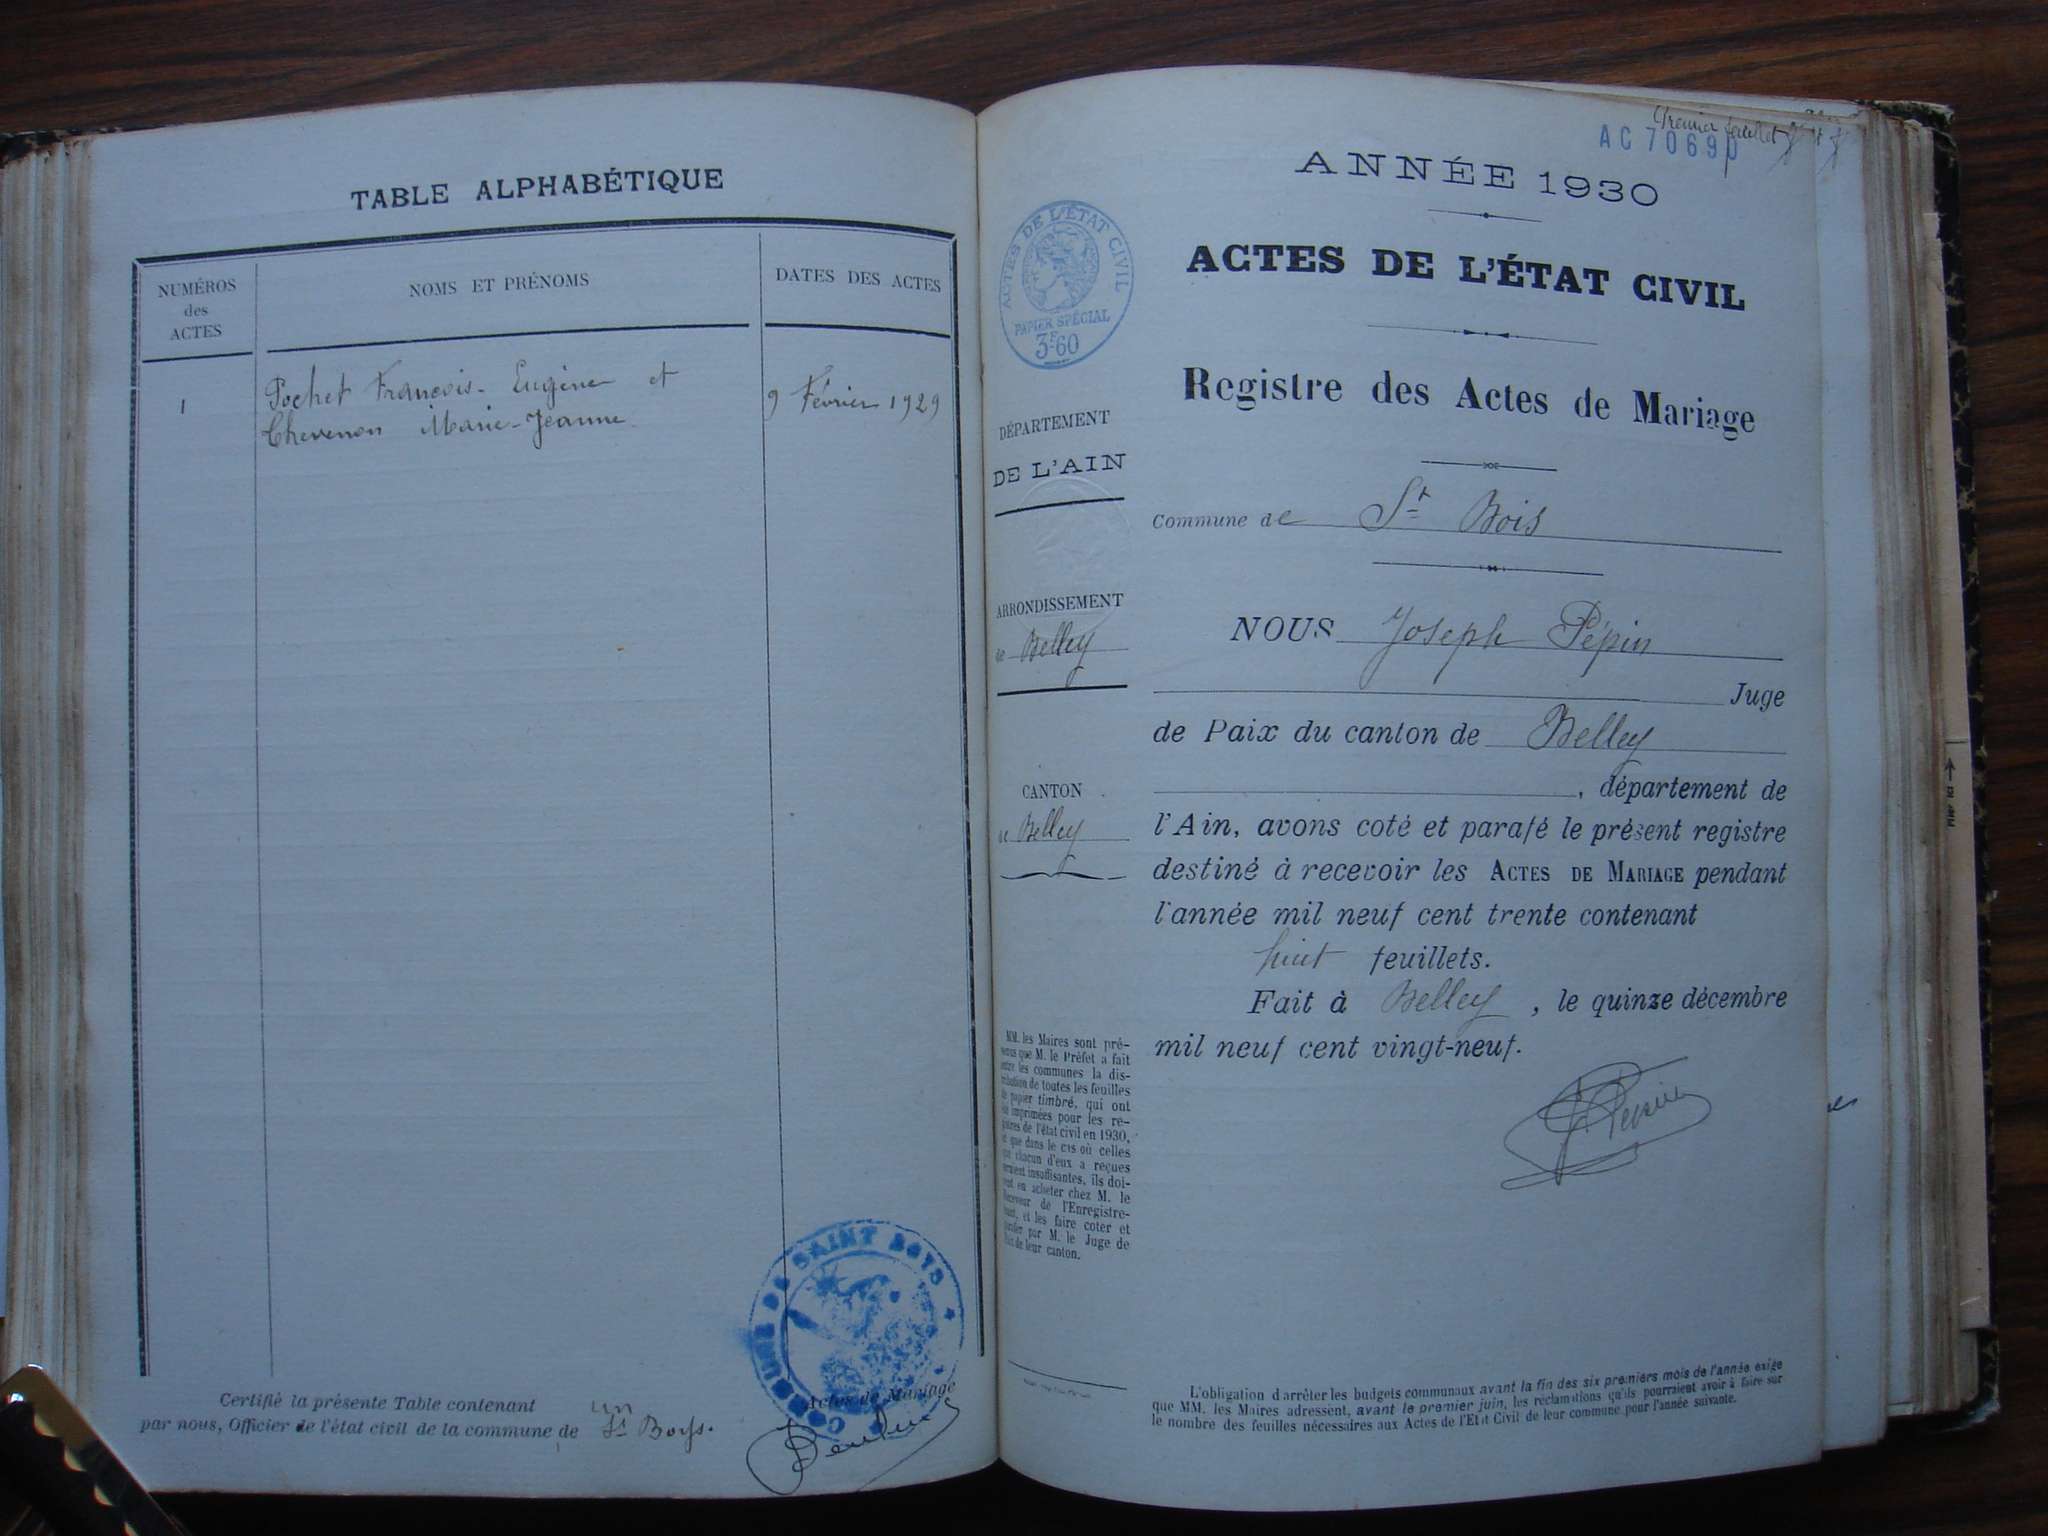 TABLE ALPHABÉTIQUE
NUMÉROS
des
ACTES
NOMS ET PRÉNOMS
DATES DES ACTES
1
Pochet François-Eugène et
Chevenon Marie-Jeanne
9 Février 1929
Certifié la présente Table contenant un Actes de Mariage
par nous, Officier de l'état civil de la commune de St Boys.
COMMUNE DE SAINT BOYS
Premier feuillet
AC 70690
ANNÉE 1930
ACTES DE L'ÉTAT CIVIL
ACTES DE L'ÉTAT CIVIL
PAPIER SPÉCIAL
3F60
Registre des Actes de Mariage
DÉPARTEMENT
DE L'AIN
Commune de St Bois
ARRONDISSEMENT
de Belley
NOUS Joseph Pépin
Juge
de Paix du canton de Belley
CANTON
de Belley
, département de
l'Ain, avons coté et parafé le présent registre
destiné à recevoir les ACTES DE MARIAGE pendant
l'année mil neuf cent trente contenant
huit feuillets.
Fait à Belley, le quinze décembre
mil neuf cent vingt-neuf.
MM. les Maires sont pré-
venus que M. le Préfet a fait
entre les communes la dis-
tribution de toutes les feuilles
de papier timbré, qui ont
été imprimées pour les re-
gistres de l'état civil en 1930,
et que dans le cas où celles
que chacun d'eux a reçues
seraient insuffisantes, ils doi-
vent en acheter chez M. le
Receveur de l'Enregistre-
ment, et les faire coter et
parafer par M. le Juge de
Paix de leur canton.
L'obligation d'arrêter les budgets communaux avant la fin des six premiers mois de l'année exige
que MM. les Maires adressent, avant le premier juin, les réclamations qu'ils pourraient avoir à faire sur
le nombre des feuilles nécessaires aux Actes de l'Etat Civil de leur commune pour l'année suivante.